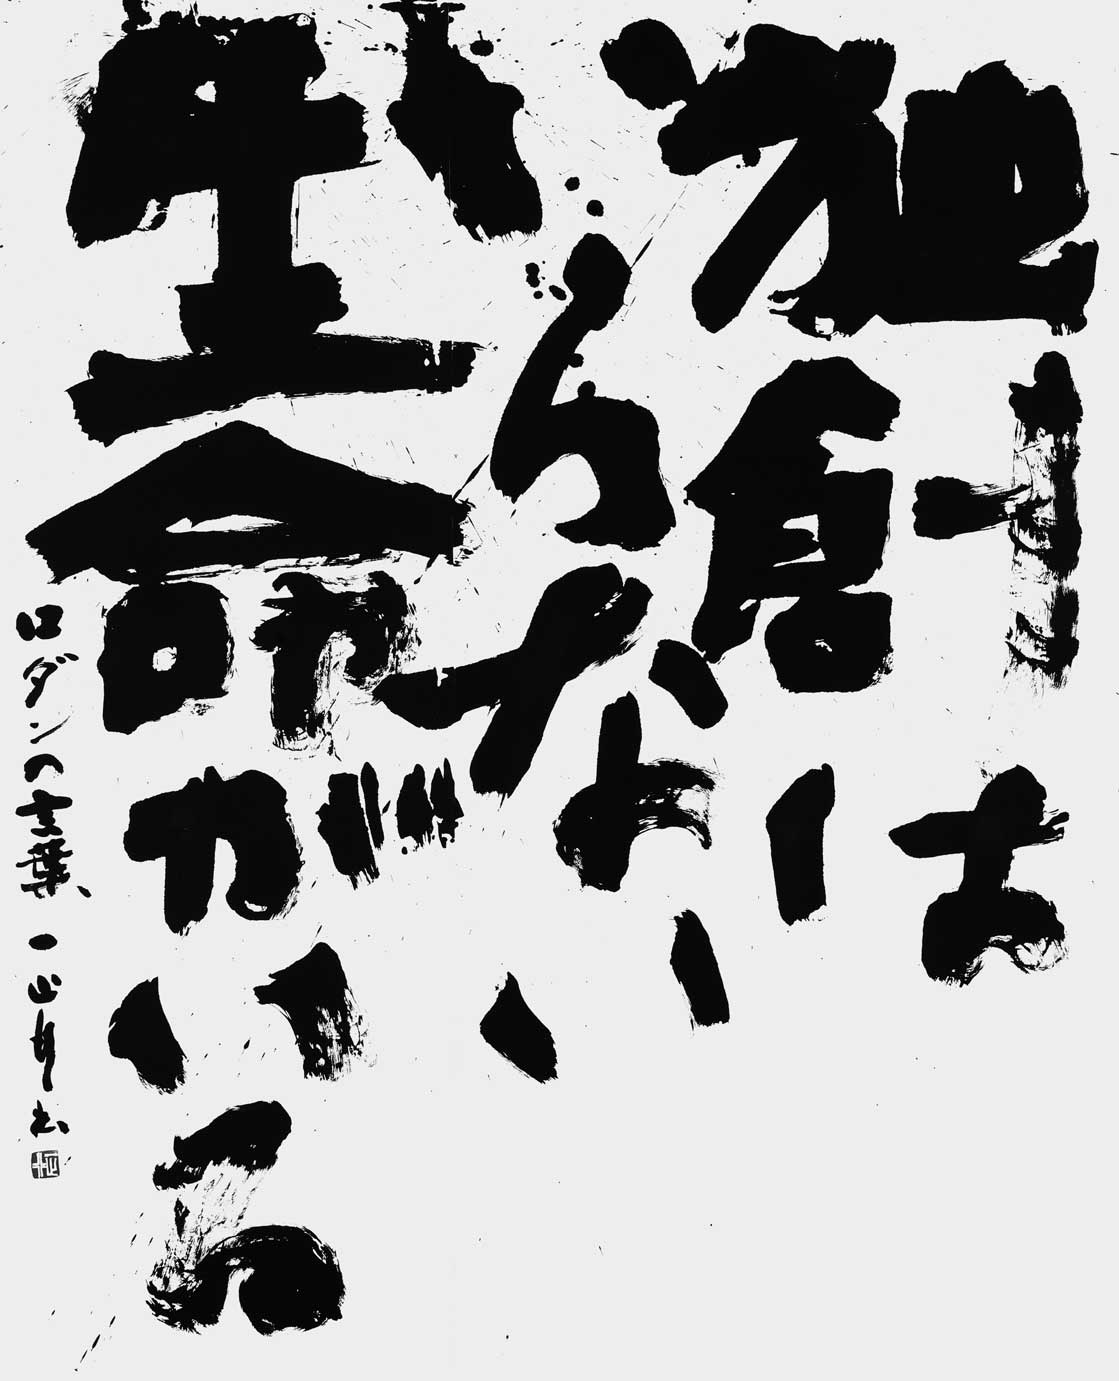 独創は
いらない
生命がいる
ロダンの言葉